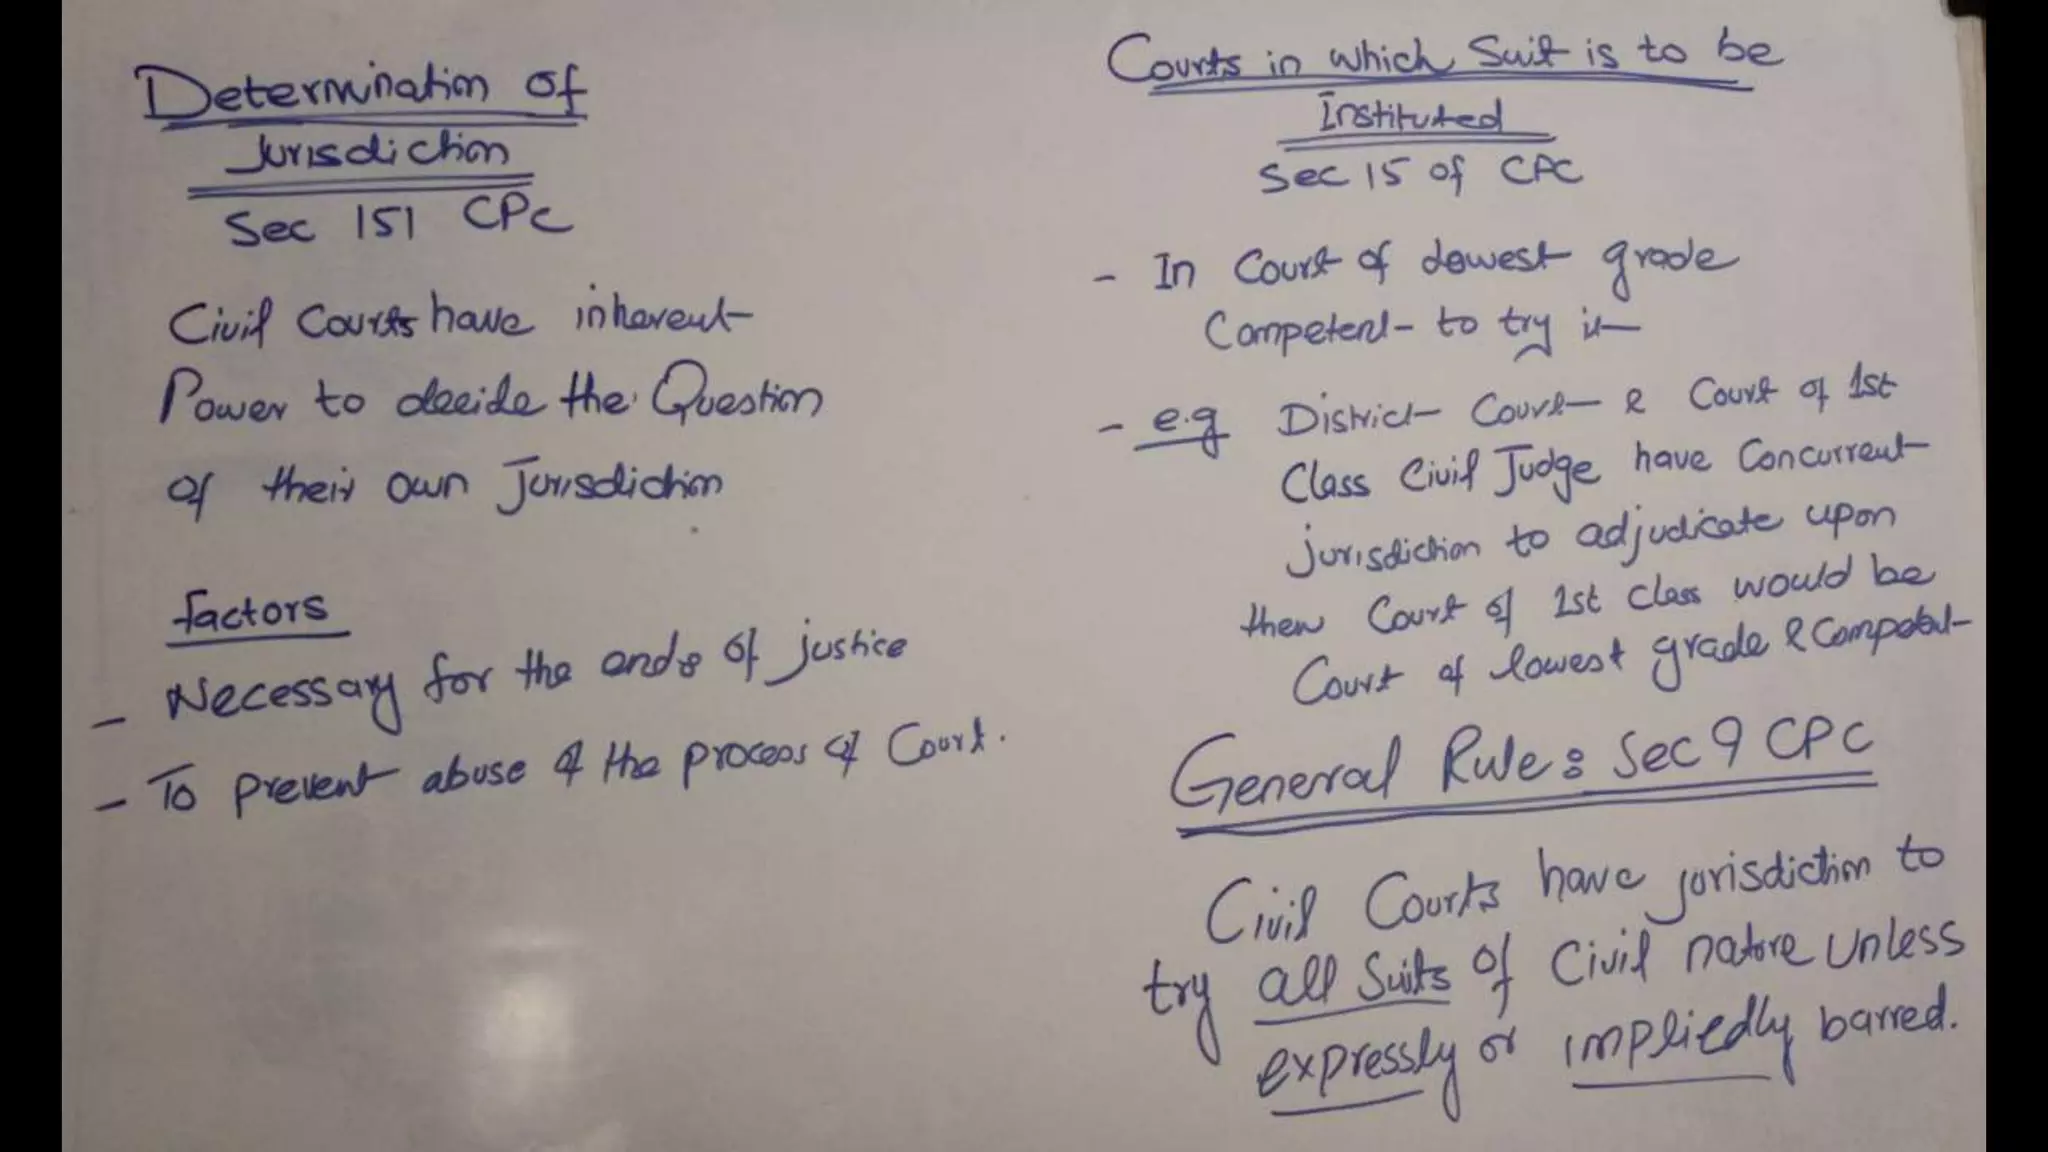 Determination of
Jurisdiction
Sec 151 CPC
Civil Courts have inherent
Power to decide the Question
of their own Jurisdiction
factors
- Necessary for the ends of justice
- To prevent abuse of the process of Court.
Courts in which Suit is to be
Instituted
Sec 15 of CPC
- In Court of lowest grade
Competent to try it
- e.g District Court & Court of 1st
Class Civil Judge have Concurrent
jurisdiction to adjudicate upon
then Court of 1st Class would be
Court of lowest grade & Competent
General Rule: Sec 9 CPC
Civil Courts have jurisdiction to
try all Suits of Civil nature unless
expressly or impliedly barred.